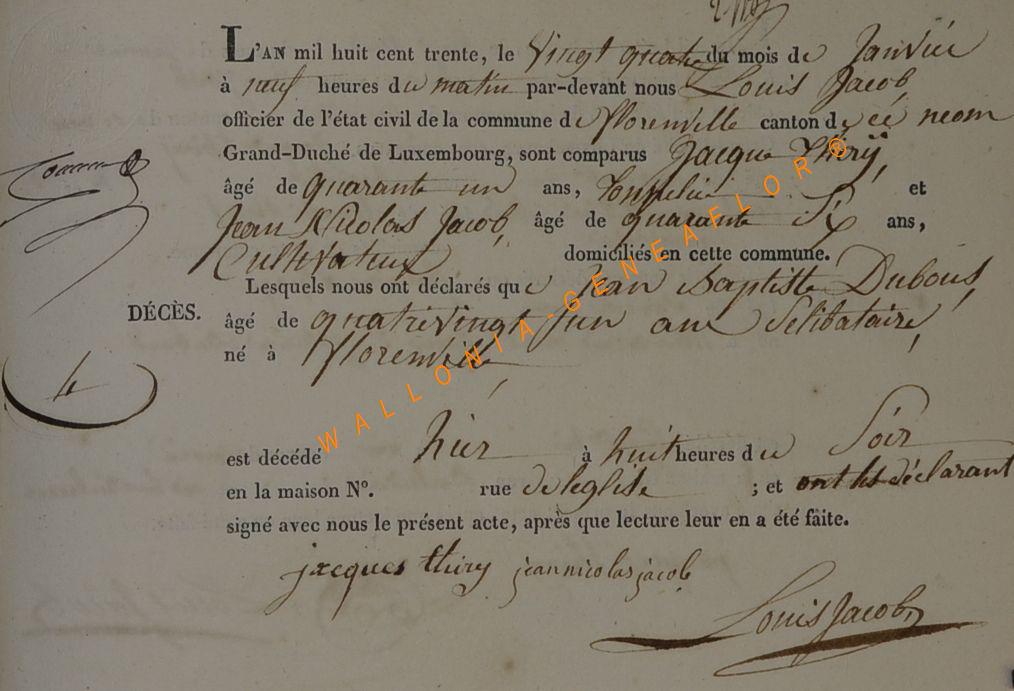 L'AN mil huit cent trente, le vingt quatre du mois de Janvié
à neuf heures du matin par-devant nous Louis Jacob,
officier de l'état civil de la commune de florenville canton de
Grand-Duché de Luxembourg, sont comparus Jacque Thiry,
âgé de quarante un ans, et
Jean Nicolas Jacob, âgé de quarante Six ans,
Cultivateux domiciliés en cette commune.
Lesquels nous ont déclarés que Jean Baptiste Dubois,
DÉCÈS.
âgé de quatrevingt un ans Selibataire,
né à florenville
4
est décédé hier à huit heures du Soir
en la maison N°. rue de leglise ; et ont les déclarant
signé avec nous le présent acte, après que lecture leur en a été faite.
jacques thiry jean nicolas jacob
Louis Jacob,
WALLONIA-GENEAFLOR®